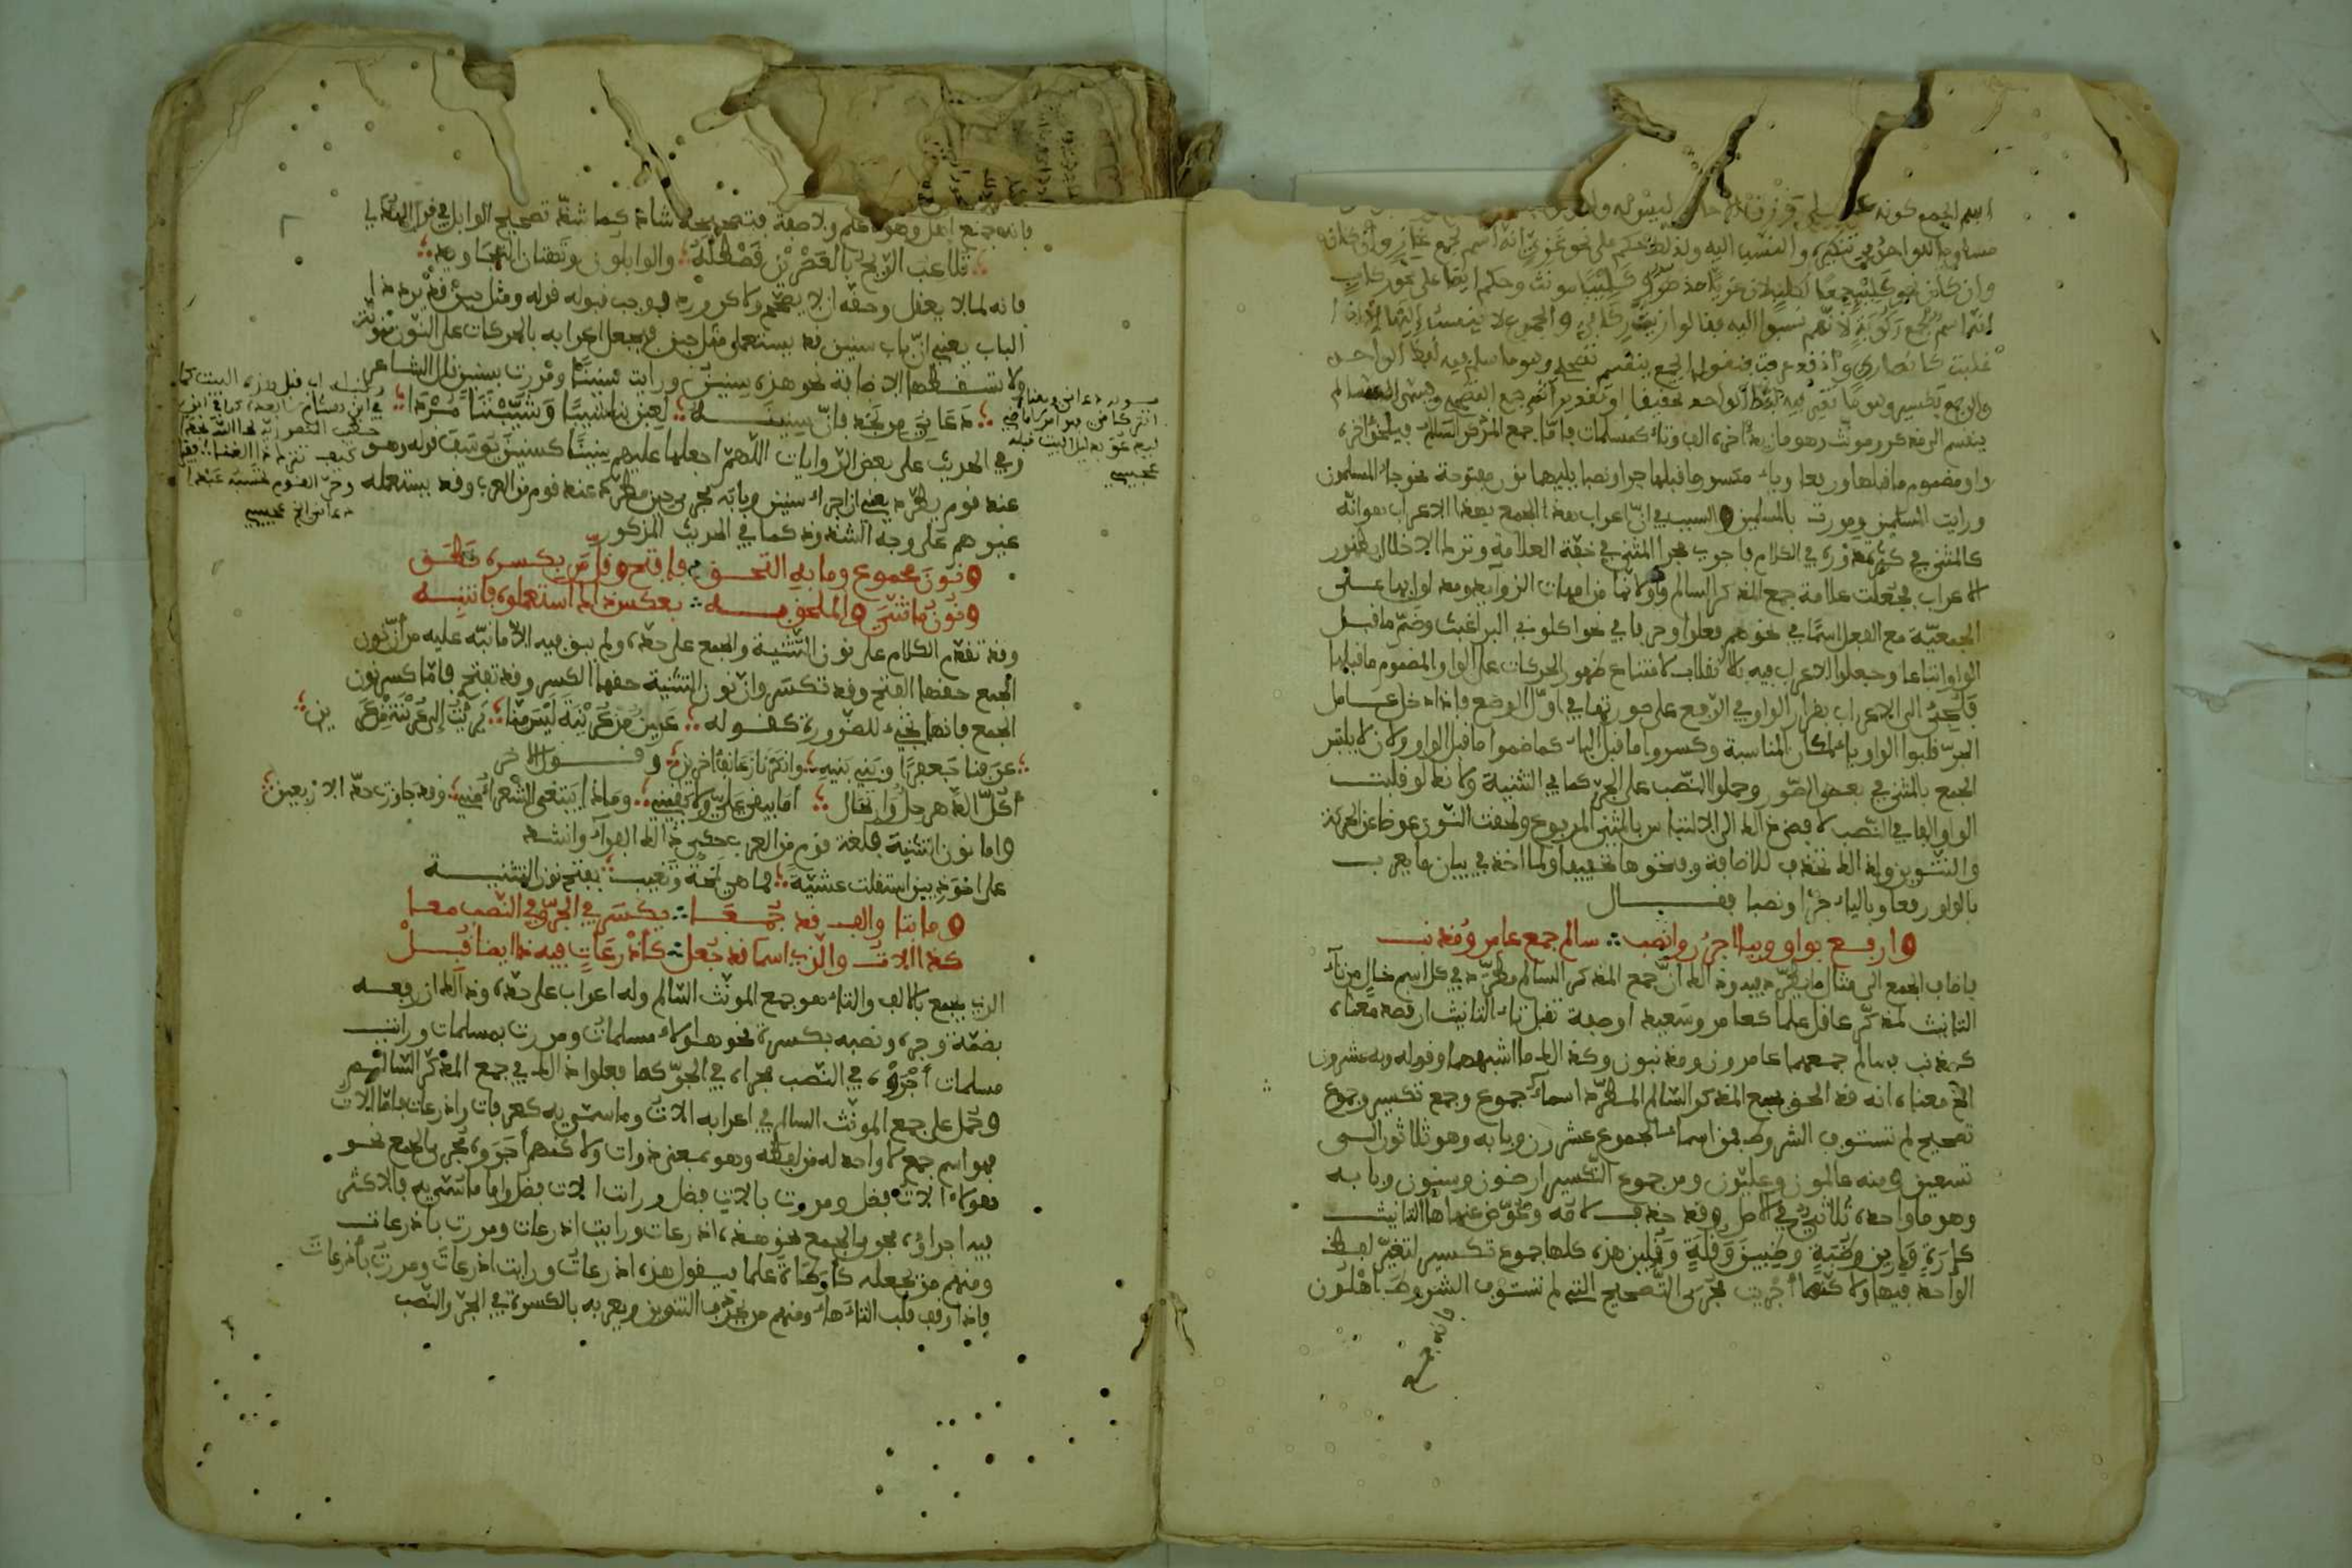 اسم الجمع كونه على
مساويا للواحد في تذكيره والنسب اليه ولذلك حكم على نحو غزي انه اسم لجمع غاز وان كان
وان كان نحو كليب جمعا لكلب لان غزيا مذكر وكليبا مونث وحكم ايضا على نحو ركاب
انه اسم لجمع ركوبة لانهم نسبوا اليه فقالوا زيت ركابي والجموع لا ينسب اليها الا اذا
غلبت كانصاري واذ قد عرفت فنقول الجمع ينقسم تصحيح وهو ما سلم فيه لفظ الواحد
والى جمع تكسير وهو ما تغير فيه لفظ الواحد تحقيقا او تقديرا ثم جمع التصحيح ويسمى السالم
ينقسم الى مذكر ومونث وهو ما زيد اخره الف وتاء كمسلمات فاما جمع المذكر السالم فيلحق اخره
واو مضموم ما قبلها رفعا وياء مكسور ما قبلها جرا ونصبا يليهما نون مفتوحة نحو جاء المسلمون
ورايت المسلمين ومررت بالمسلمين والسبب في ان اعراب هذا الجمع بهذا الاعراب هو انه
كالمثنى في كثرة دوره في الكلام فاجري مجرا المثنى في خفة العلامة وترك الاخلال بظهور
الاعراب فجعلت علامة جمع المذكر السالم واوا لانها من امهات الزوائد ومدلول بها على
الجمعية مع الفعل اسما في نحو هم فعلوا وحرفا في نحو اكلوني البراغيث وضم ما قبل
الواو اتباعا وجعلوا الاعراب فيه بالانقلاب لامتناع ظهور الحركات على الواو المضموم ما قبلها
فالجئ الى الاعراب بقرار الواو في الرفع على صورتها في اول الوضع فاذا دخل عامل
الجر قلبوا الواو ياء لمكان المناسبة وكسروا ما قبل الياء كما ضموا ما قبل الواو ولان لا يلتبس
الجمع بالمثنى في بعض الصور وحملوا النصب على الجر كما في التثنية ولانه لو قلبت
الواو الفا في النصب لافضى ذلك الى الالتباس بالمثنى المرفوع ولحقت النون عوضا عن الحركة
والتنوين ولذلك تحذف للاضافة ولما اخذ في بيان ما يعرب
بالواو رفعا وبالياء جرا ونصبا فقال
وارفع بواو وبيا اجرر وانصب ∴ سالم جمع عامر ومذنب
فاضاف الجمع الى مثال ما يطرد فيه وذلك ان جمع المذكر السالم مطرد في كل اسم خال من تاء
التانيث لمذكر عاقل علما كعامر وسعيد او صفة تقبل تاء التانيث ان قصد معناه
كمذنب فسالم جمعهما عامرون ومذنبون وكذلك ما اشبههما وقوله وبه عشرون
الخ معناه انه قد الحق بجمع المذكر السالم المطرد اسماء جموع وجمع تكسير وجموع
تصحيح لم تستوف الشروط فمن اسماء الجموع عشرون وبابه وهو ثلاثون الى
تسعين ومنه عالمون وعليون ومن جموع التكسير ارضون وسنون وبابه
وهو ما واحده ثلاثي في الاصل وقد حذف لامه وعوض عنها ها التانيث
كارة وارين وظبة وظبين وقلة وقلين هذه كلها جموع تكسير لتغير لفظ
الواحد فيها ولاكنها اجريت مجرى التصحيح التي لم تستوف الشروط اهلون
فانه جمع
فانه جمع اهل وهو لا علم ولا صفة فتصحيحه شاذ كما شذ تصحيح الوابل في قول الهذلي
تلاعب الريح بالعصرين قسطله ∴ والوابلون وتهتان التجاويد
فانه لما لا يعقل وحقه ان لا يصحح ولاكن ورد فوجب قبوله قوله ومثل حين قد يرد ذا
الباب يعني ان باب سنين قد يستعمل مثل حين فيجعل اعرابه بالحركات على النون منونة
ولا تسقطها الاضافة نحو هذه سنين ورايت سنينا ومررت بسنين قال الشاعر
∴ دعاني من نجد فان سنينه ∴ لعبن بنا شيبا وشيبننا مردا ∴
وفي الحديث على بعض الروايات اللهم اجعلها عليهم سنينا كسنين يوسف قوله وهو
عند قوم يطرد يعني ان اجراء سنين وبابه مجرى حين مطرد عند قوم من العرب وقد يستعمله
غيرهم على وجه الشذوذ كما في الحديث المذكور
ونون مجموع وما به التحق ∴ فافتح وقل من بكسره نطق
ونون ما ثني والملحق به ∴ بعكس ذاك استعملوه فانتبه
وقد تقدم الكلام على نون التثنية والجمع على حده ولم يبق فيه الا ما نبه عليه من ان نون
الجمع حقها الفتح وقد تكسر وان نون التثنية حقها الكسر وقد تفتح فاما كسر نون
الجمع فانها يجيء للضرورة كقوله ∴ عرين من عرينة ليس منا ∴ برئت الى عرينة من عرين
∴ عرفنا جعفرا وبني بنيه ∴ وانكرنا زعانف اخرين ∴ وقول الاخر
اكل الدهر حل وارتحال ∴ اما يبقي علي ولا يقيني ∴ وماذا يبتغي الشعراء مني ∴ وقد جاوزت حد الاربعين
واما نون التثنية فلغة قوم من العرب حكى ذلك الفراء وانشد
على احوذيين استقلت عشية ∴ فما هي لمحة وتغيب ∴ بفتح نون التثنية
وما بتا والف قد جمعا ∴ يكسر في الجر وفي النصب معا
كذا الات والذي اسما قد جعل ∴ كاذرعات فيه ذا ايضا قبل
الذي يجمع بالالف والتاء هو جمع المونث السالم وله اعراب على حده وذلك ان رفعه
بضمة وجره ونصبه بكسرة نحو هاولاء مسلمات ومررت بمسلمات ورايت
مسلمات اجروه في النصب مجراه في الجر كما فعلوا ذلك في جمع المذكر السالم
وحمل على جمع المونث السالم في اعرابه الات وما سمي به كعرفات واذرعات فاما الات
فهو اسم جمع لا واحد له من لفظه وهو بمعنى ذوات ولاكنهم اجروه مجرى الجمع نحو
هولاء الات فضل ومررت بالات فضل ورايت الات فضل واما ما سمي به فالاكثر
فيه اجراؤه مجرى الجمع نحو هذه اذرعات ورايت اذرعات ومررت باذرعات
ومنهم من يجعله كارطاة علما فيقول هذه اذرعات ورايت اذرعات ومررت باذرعات
فاذا وقف قلب التاء هاء ومنهم من يحذف التنوين ويعربه بالكسرة في الجر والنصب